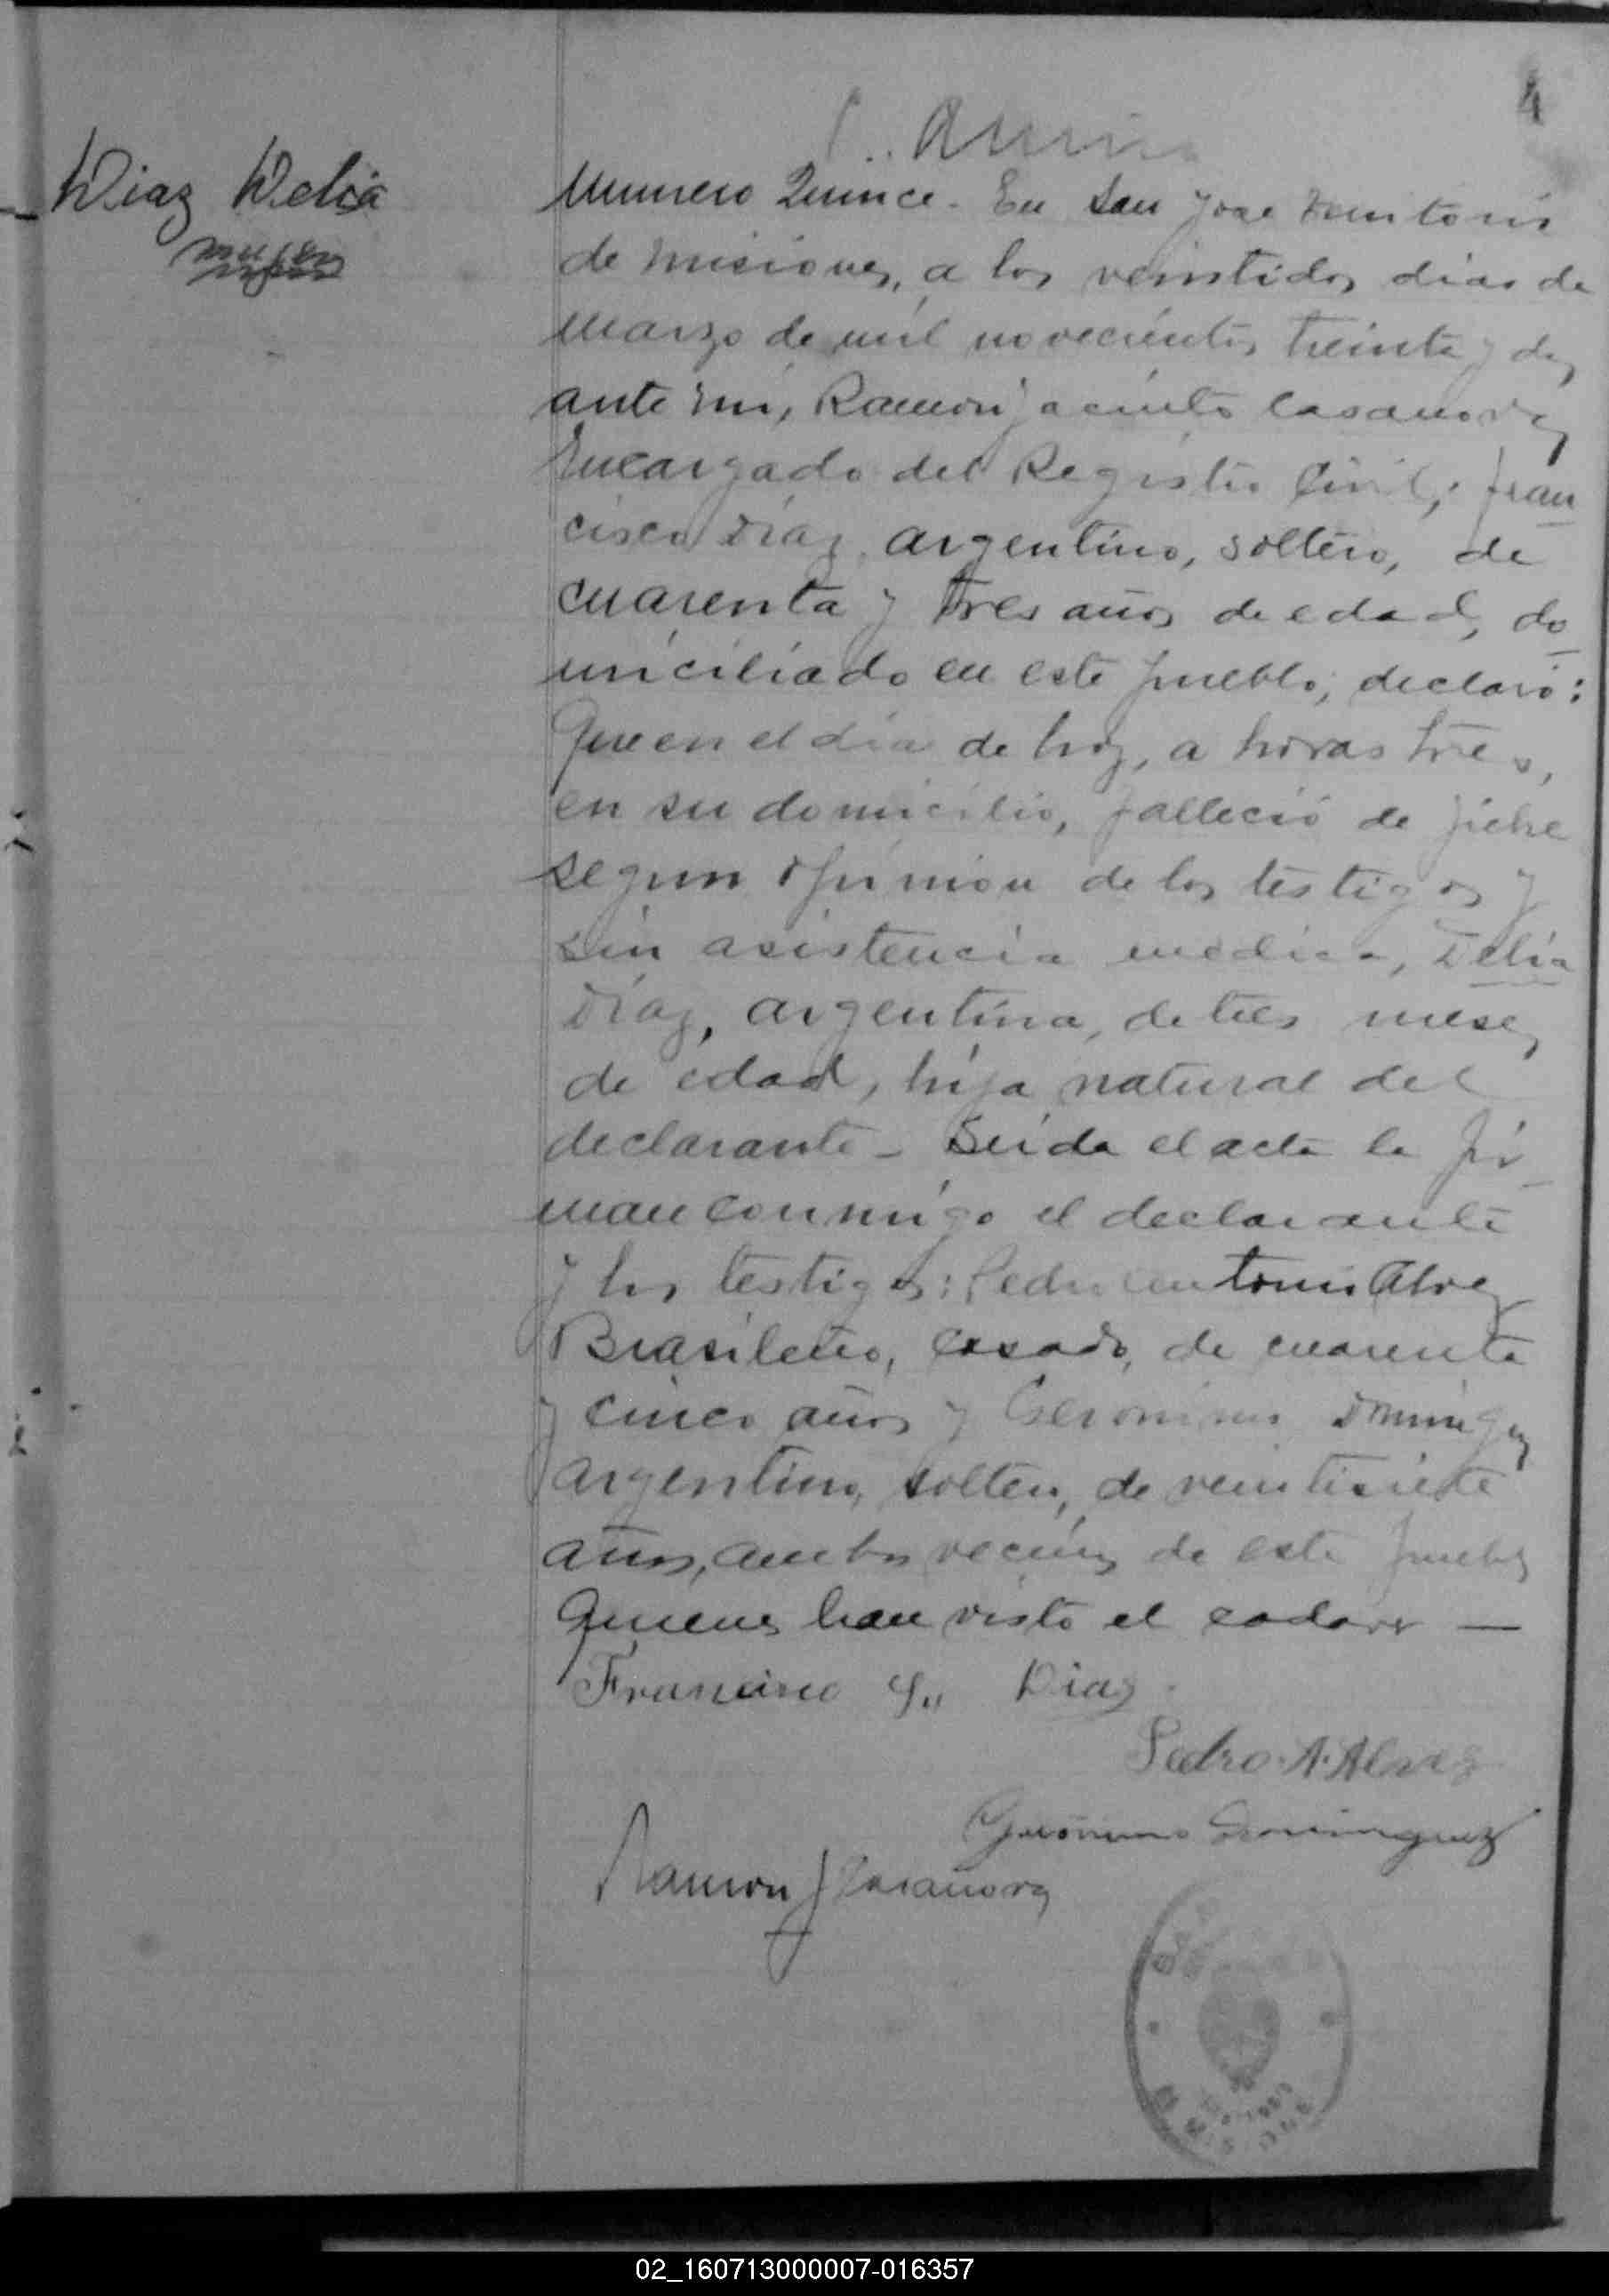 4
Diaz Delia
Numero Quince. En San Jose Territorio
de Misiones, a los veintidos dias de
Marzo de mil novecientos treinta y dos
ante mi, Ramon Jacinto Casanova,
Encargado del Registro Civil; Fran
cisco Diaz, argentino, soltero, de
cuarenta y tres años de edad, do
miciliado en este pueblo, declaró:
Que en el dia de hoy, a horas tres,
en su domicilio, falleció de fiebre
segun opinion de los testigos y
sin asistencia medica, Delia
Diaz, argentina, de tres meses
de edad, hija natural del
declarante - Leida el acta la fir
man conmigo el declarante
y los testigos: Pedro Antonio Alvez
Brasilero, casado, de cuarenta
y cinco años y Geronimo Dominguez
argentino, soltero, de veintisiete
años, ambos vecinos de este pueblo
quienes han visto el cadaver —
Francisco Diaz.
Pedro. A. Alvez
Geronimo Dominguez
Ramon J Casanova
02_160713000007-016357